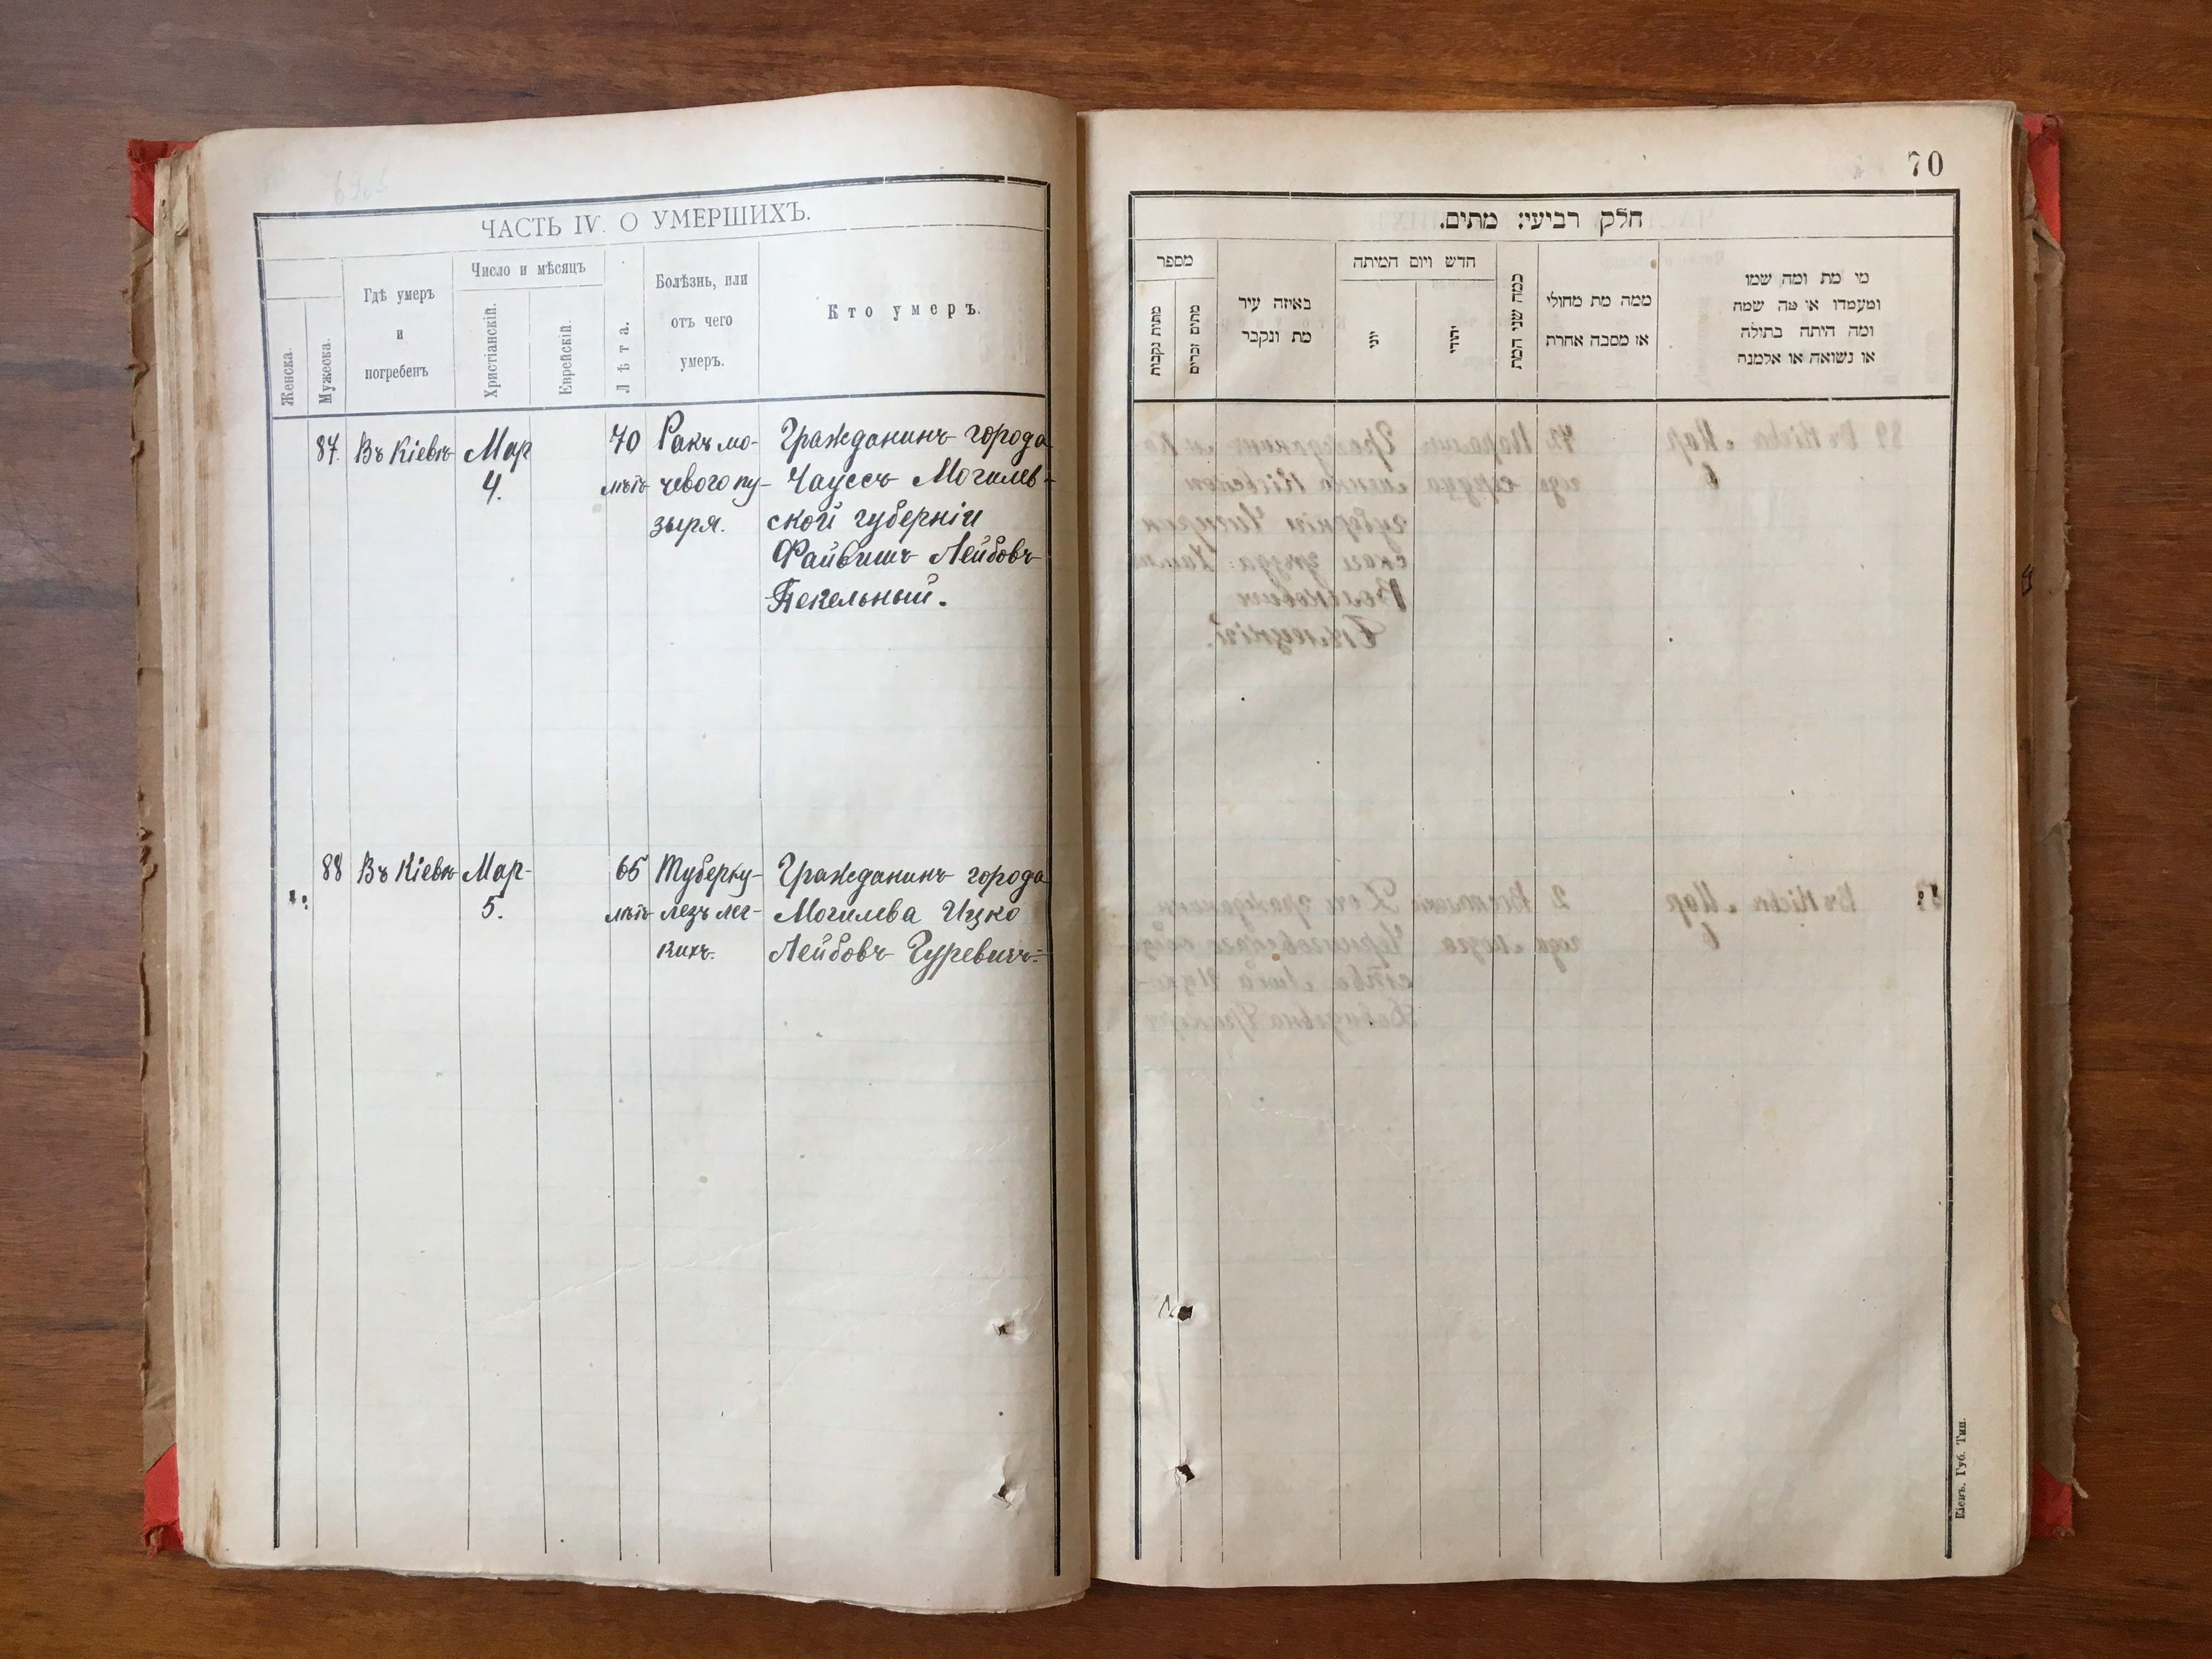 ЧАСТЬ IV. О УМЕРШИХЪ.
Женска.
Мужеска.
Гдѣ умеръ
и
погребенъ
Число и мѣсяцъ
Христіанскій.
Еврейскій.
Лѣта.
Болѣзнь, или
отъ чего
умеръ.
Кто умеръ.
87. Въ Кіевѣ Мар 70 Ракъ мо- Гражданинъ города
4. лѣтъ чевого пу- Чауссъ Могилев-
зыря. ской губерніи
Файвишъ Лейбовъ
Пекельный.
88 Въ Кіевѣ Мар- 65 Туберку- Гражданинъ города
5. лѣтъ лезъ лег- Могилева Ицко
кихъ. Лейбовъ Гуревичъ.
70
חלק רביעי: מתים.
מספר
מתות נקבות
מתים זכרים
באיזה עיר
מת ונקבר
חדש ויום המיתה
יוני
יהודי
כמה שני המת
ממה מת מחולי
או מסבה אחרת
מי מת ומה שמו
ומעמדו או מה שמה
ומה היתה בתולה
או נשואה או אלמנה
Кіевъ, Губ. Тип.